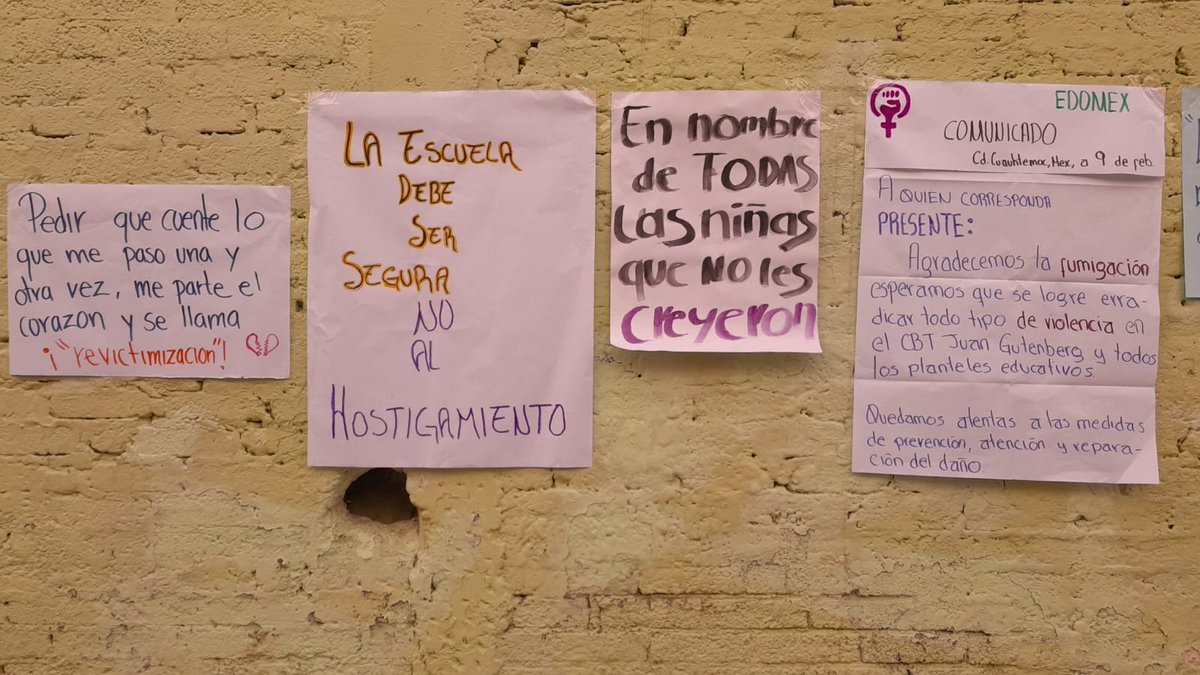 Pedir que cuente lo
que me paso una y
otra vez, me parte el
corazon y se llama
¡"revictimización"!
LA ESCUELA
DEBE
SER
SEGURA
NO
AL
HOSTIGAMIENTO
En nombre
de TODAS
Las niñas
que NO les
creyeron
EDOMEX
COMUNICADO
Cd. Cuauhtemoc, Mex, a 9 de feb.
A QUIEN CORRESPONDA
PRESENTE:
Agradecemos la fumigación
esperamos que se logre erra-
dicar todo tipo de violencia en
el CBT Juan Gutenberg y todos
los planteles educativos.
Quedamos atentas a las medidas
de prevención, atención y repara-
ción del daño.